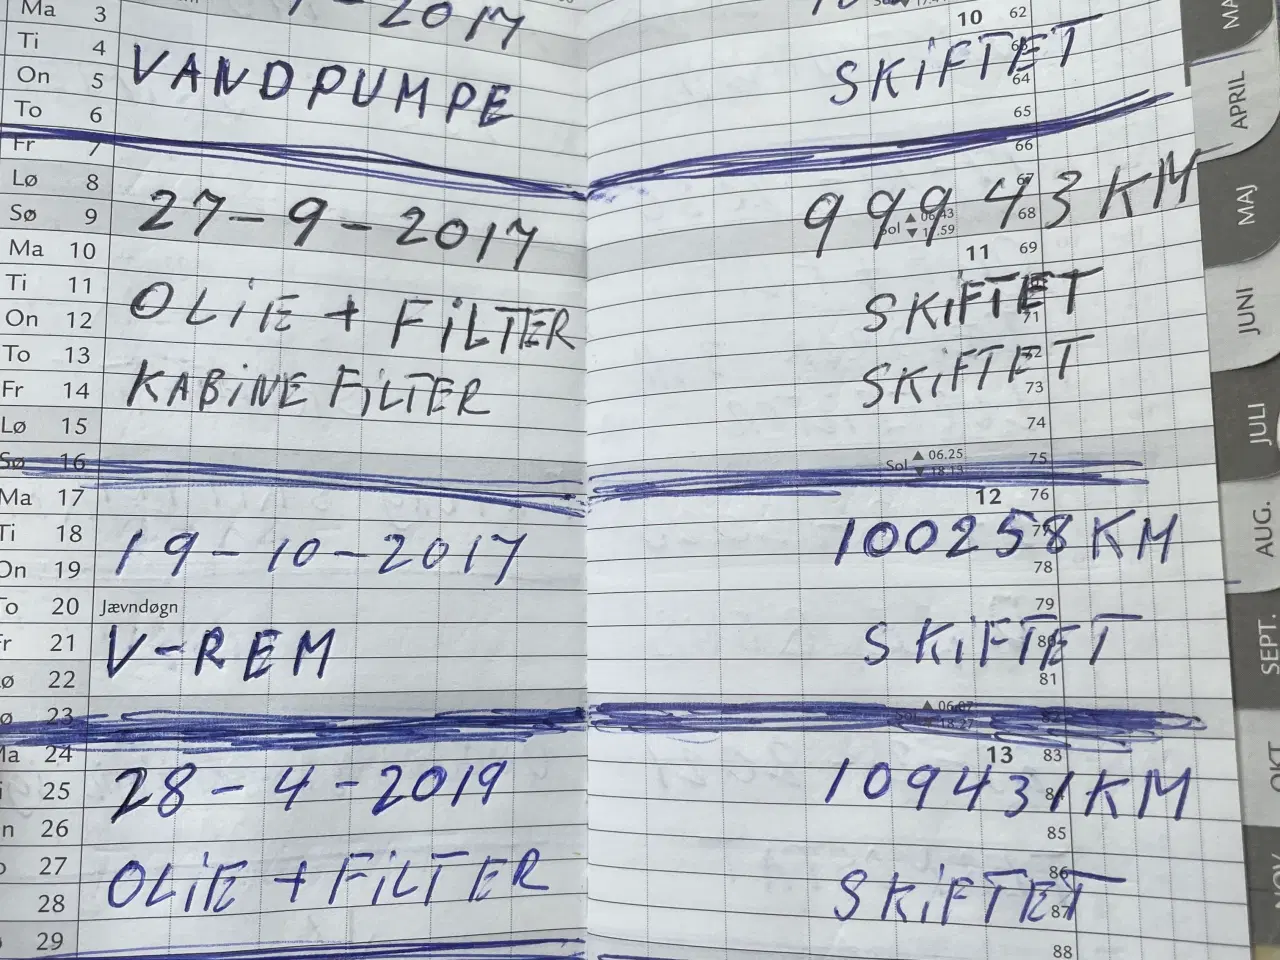 Ma 3 - 2017 62
Ti 4 10
On 5 VANDPUMPE SKiFTET 64
To 6 65
Fr 7 66
Lø 8 67
Sø 9 27-9-2017 99943 KM 68
Sol ▲ 06.43 ▼ 17.59
Ma 10 11 69
Ti 11 OLiE + FiLTER SKiFTET
On 12 71
To 13 KABiNE FiLTER SKiFTET 72
Fr 14 73
Lø 15 74
Sø 16 Sol ▲ 06.25 ▼ 18.13 75
Ma 17 12 76
Ti 18 19-10-2017 100258 KM 77
On 19 78
To 20 Jævndøgn 79
Fr 21 V-REM SKiFTET 80
Lø 22 81
Sø 23 Sol ▲ 06.07 ▼ 18.27 82
Ma 24 13 83
Ti 25 28-4-2019 109431 KM 84
On 26 85
To 27 OLiE + FiLTER SKiFTET 86
28 87
29 88
APRIL
MAJ
JUNI
JULI
AUG.
SEPT.
OKT.
NOV.